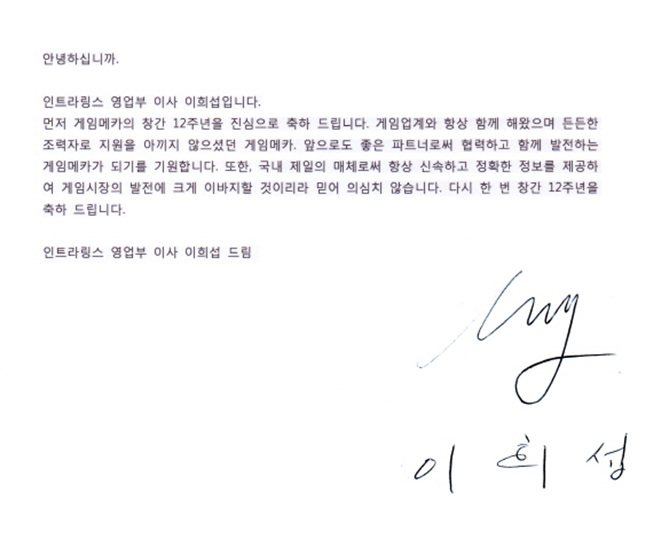 안녕하십니까.
인트라링스 영업부 이사 이희섭입니다.
먼저 게임메카의 창간 12주년을 진심으로 축하 드립니다. 게임업계와 항상 함께 해왔으며 든든한
조력자로 지원을 아끼지 않으셨던 게임메카. 앞으로도 좋은 파트너로써 협력하고 함께 발전하는
게임메카가 되기를 기원합니다. 또한, 국내 제일의 매체로써 항상 신속하고 정확한 정보를 제공하
여 게임시장의 발전에 크게 이바지할 것이리라 믿어 의심치 않습니다. 다시 한 번 창간 12주년을
축하 드립니다.
인트라링스 영업부 이사 이희섭 드림
이 희 섭